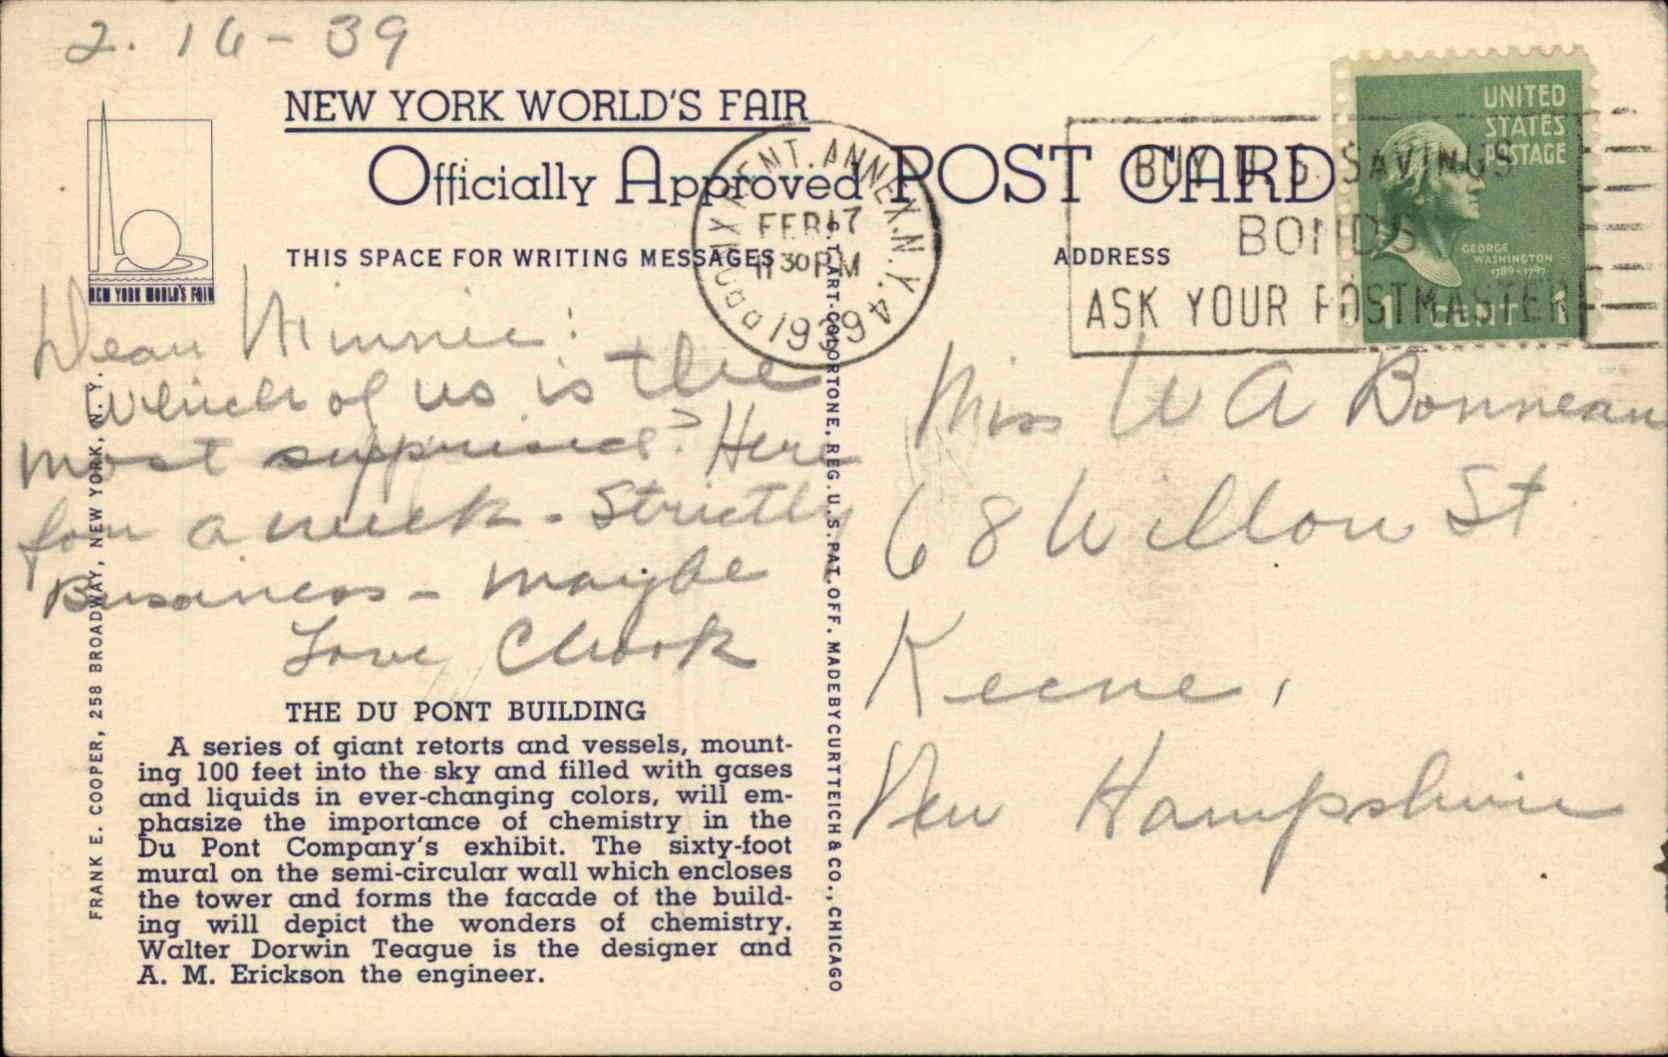 2. 16 - 39
NEW YORK WORLD'S FAIR
Officially Approved POST CARD
THIS SPACE FOR WRITING MESSAGES
ADDRESS
NEW YORK WORLD'S FAIR
BRONX CENT. ANNEX. N.Y. 4
FEB 17
11 30 PM
1939
BUY U. S. SAVINGS
BONDS
ASK YOUR POSTMASTER
UNITED
STATES
POSTAGE
GEORGE
WASHINGTON
1789-1797
1 CENT 1
Dear Minnie:
Which of us is the
most surprised? Here
for a week - Strictly
Business - maybe
Love Chook
Miss W A Bonneau
68 Willow St
Keene,
New Hampshire
THE DU PONT BUILDING
A series of giant retorts and vessels, mount-
ing 100 feet into the sky and filled with gases
and liquids in ever-changing colors, will em-
phasize the importance of chemistry in the
Du Pont Company's exhibit. The sixty-foot
mural on the semi-circular wall which encloses
the tower and forms the facade of the build-
ing will depict the wonders of chemistry.
Walter Dorwin Teague is the designer and
A. M. Erickson the engineer.
FRANK E. COOPER, 258 BROADWAY, NEW YORK, N. Y.
C.T. ART-COLORTONE, REG. U.S. PAT. OFF. MADE BY CURT TEICH & CO., CHICAGO